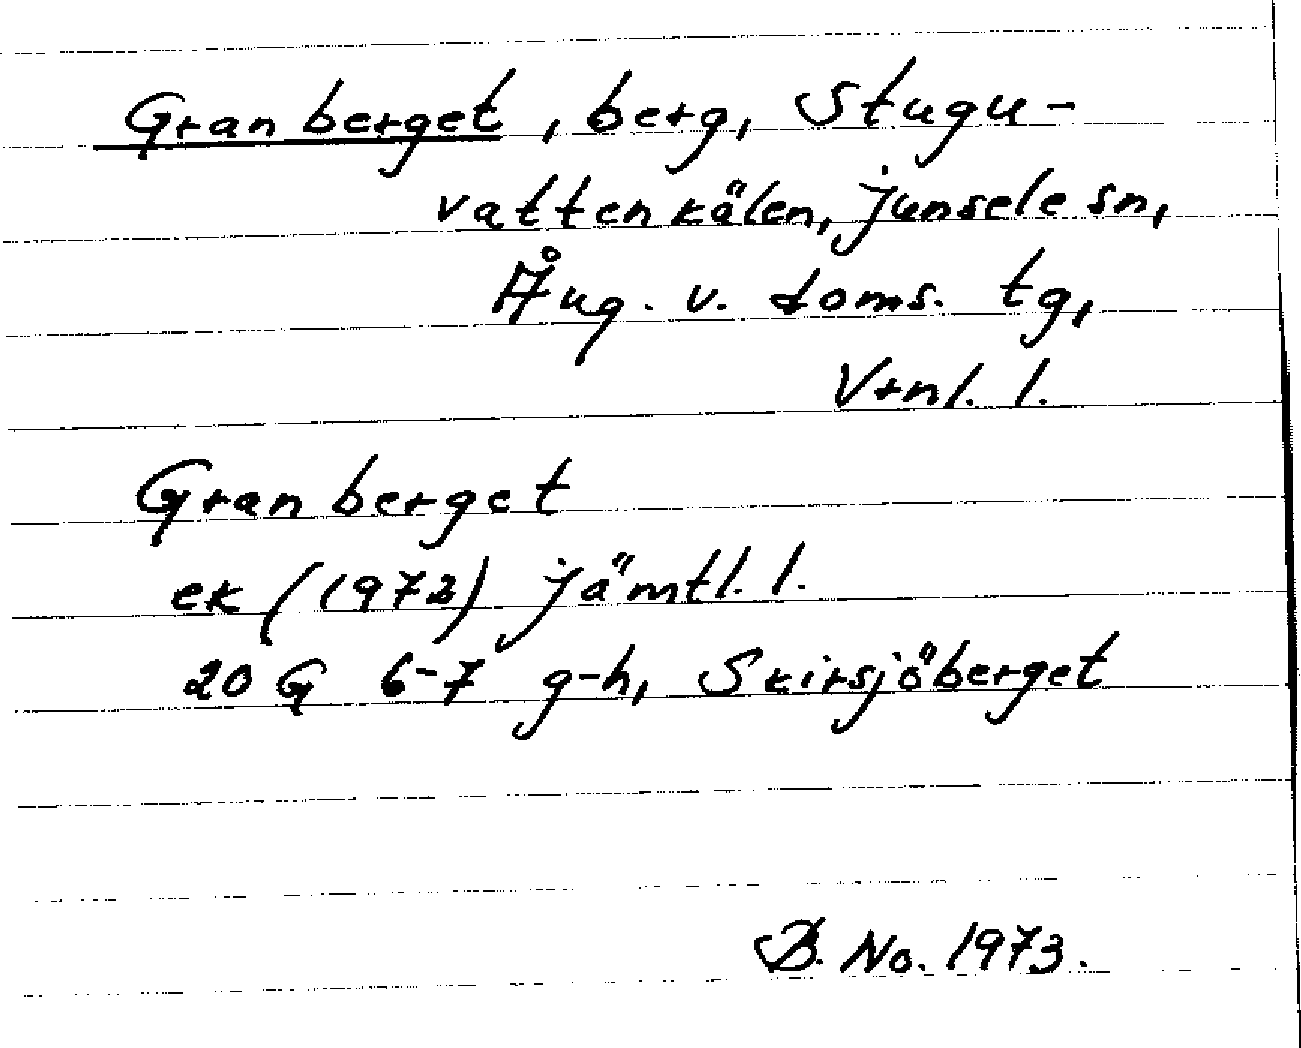 Granberget, berg, Stugu-
vattenkälen, Junsele sn,
Ång. v. doms. tg,
Vrnl. l.
Granberget
ek (1972) Jämtl. l.
20 G 6-7 g-h, Skirsjöberget
B. No. 1973.